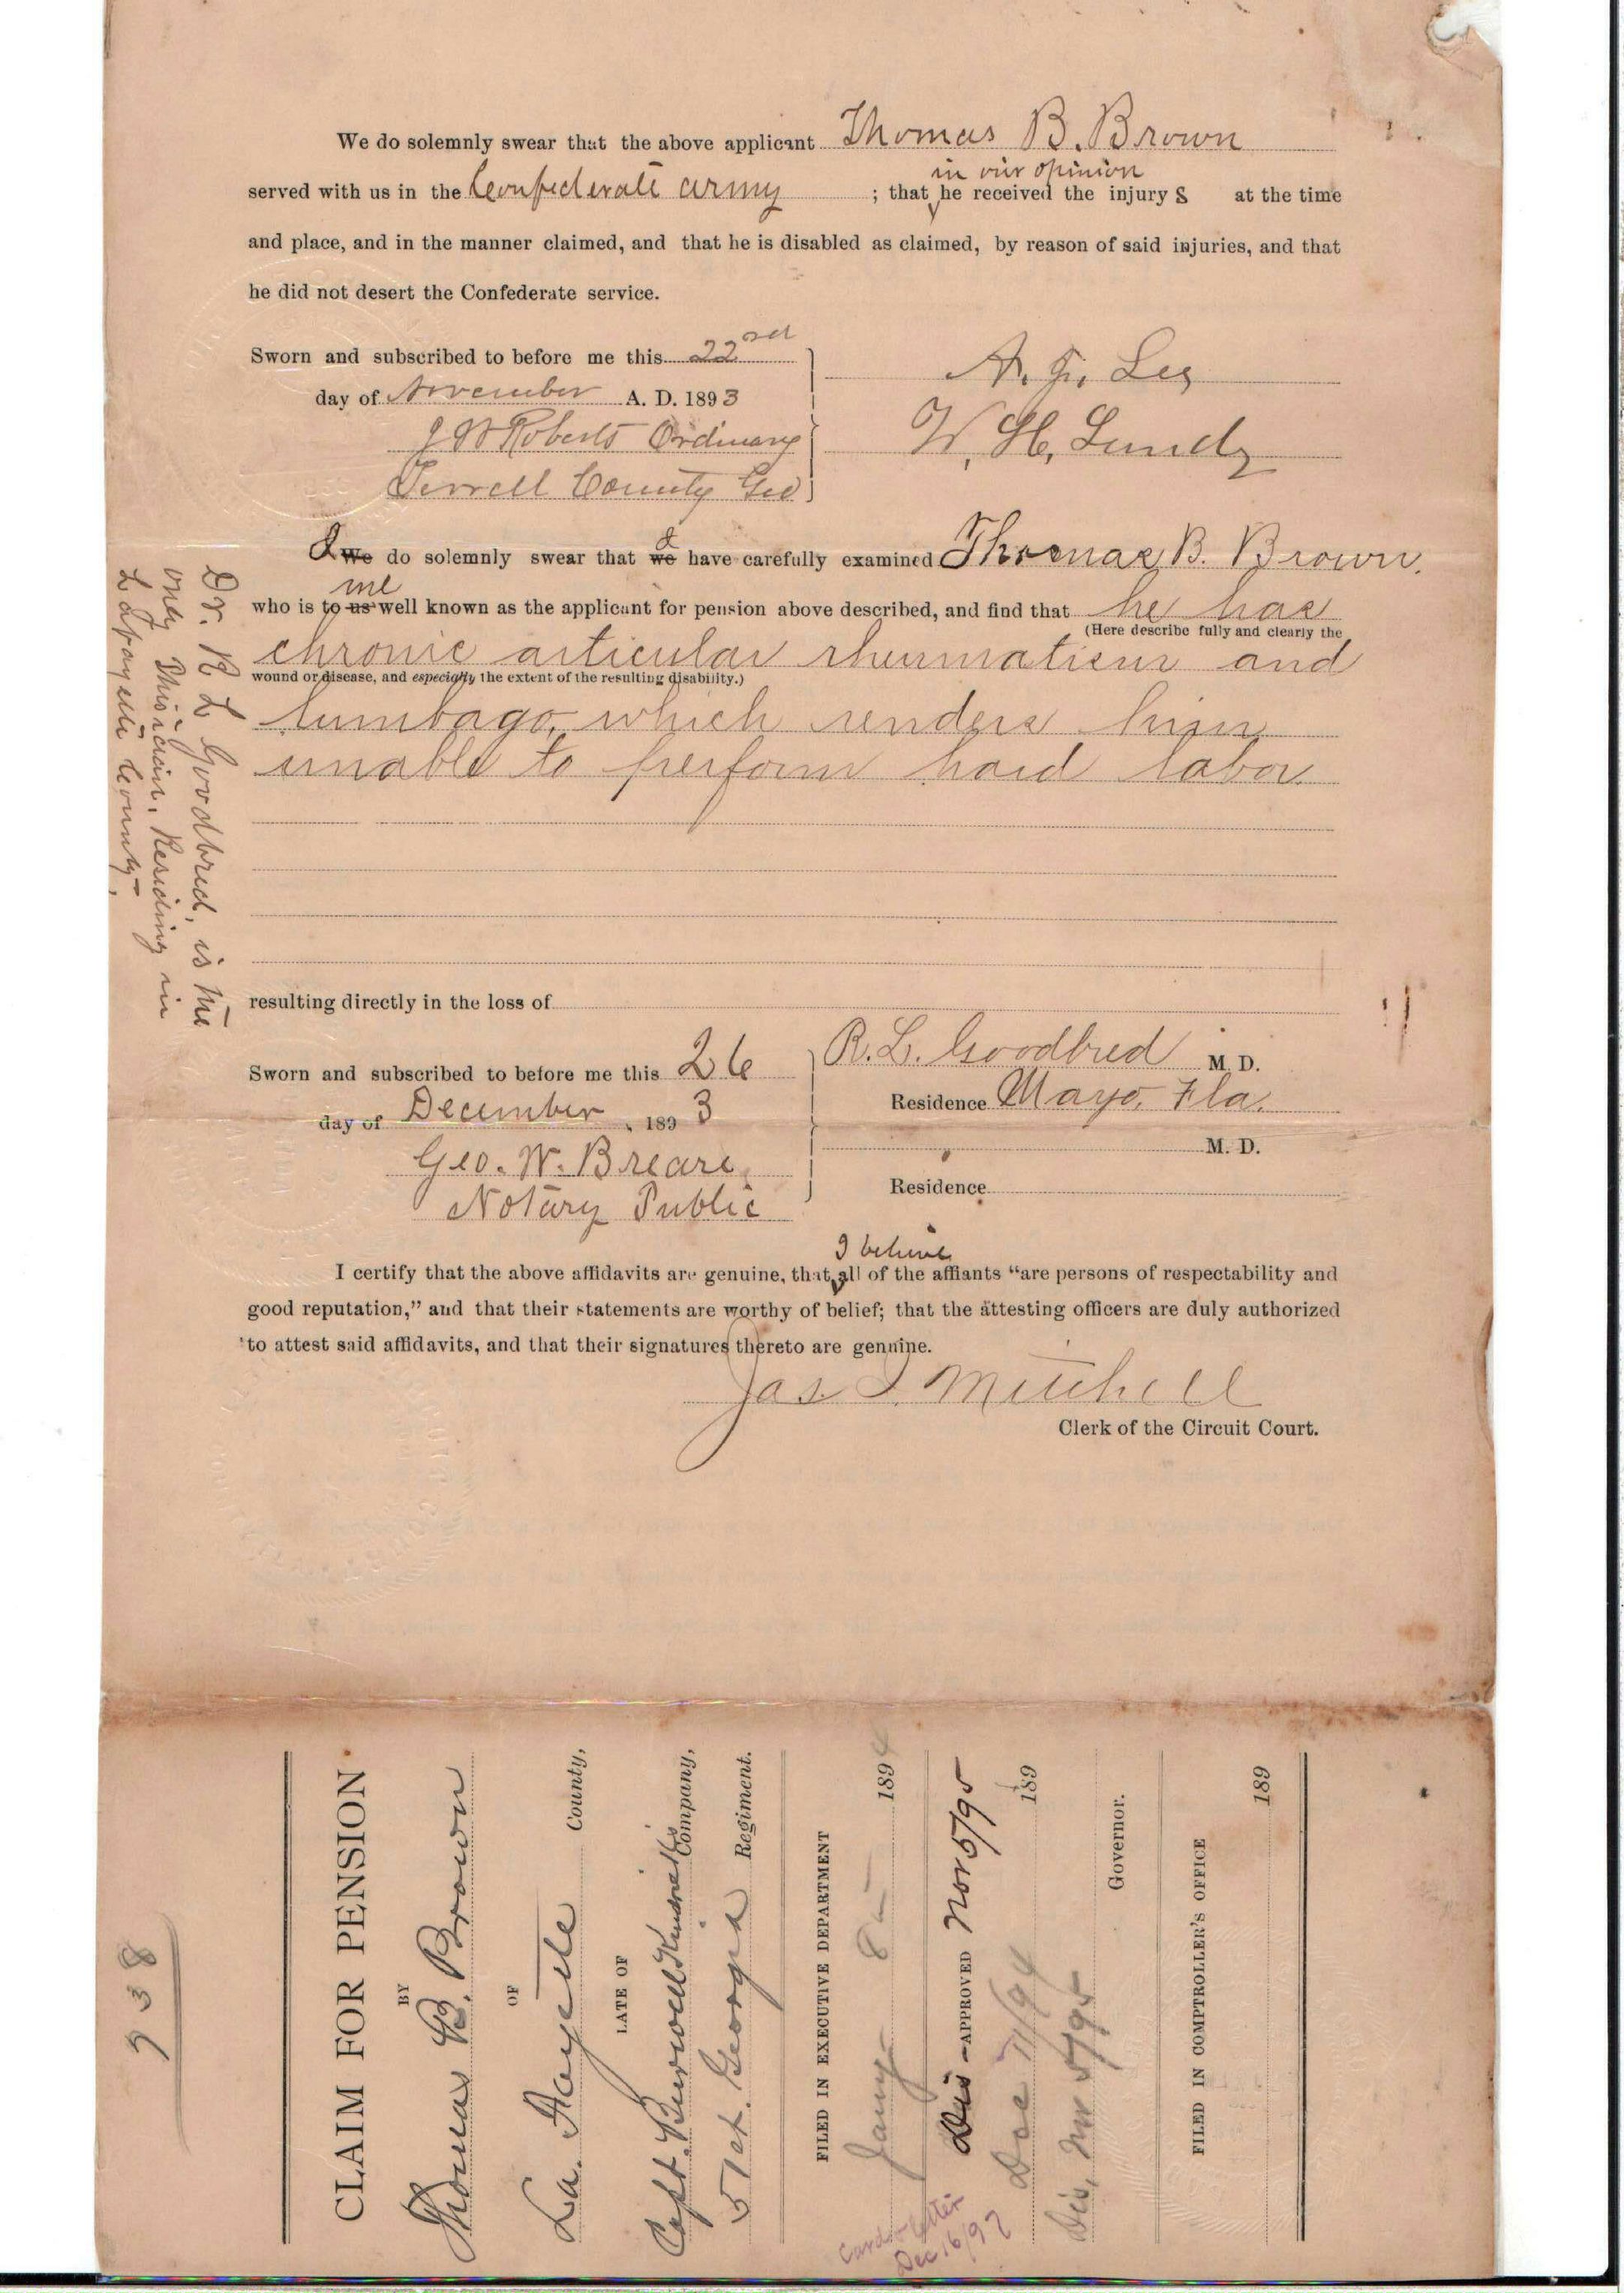 We do solemnly swear that the above applicant Thomas B. Brown
in our opinion
served with us in the Confederate army ; that he received the injury s at the time
and place, and in the manner claimed, and that he is disabled as claimed, by reason of said injuries, and that
he did not desert the Confederate service.
Sworn and subscribed to before me this 22nd
day of November A. D. 1893
J W Roberts Ordinary
Terrell County Geo
Lee
W. H. Lundy
I we do solemnly swear that we I have carefully examined Thomas B. Brown.
me
who is to us well known as the applicant for pension above described, and find that he has
(Here describe fully and clearly the
chronic articular rheumatism and
wound or disease, and especially the extent of the resulting disability.)
lumbago, which renders him
unable to perform hard labor
resulting directly in the loss of
Sworn and subscribed to before me this 26
day of December, 1893
Geo. W. Breare
Notary Public
R. L. Goodbred M. D.
Residence Mayo, Fla.
M. D.
Residence
I believe
I certify that the above affidavits are genuine, that all of the affiants "are persons of respectability and
good reputation," and that their statements are worthy of belief; that the attesting officers are duly authorized
to attest said affidavits, and that their signatures thereto are gennine.
Jas. Mitchell
Clerk of the Circuit Court.
Dr. R L Goodbred, is the
only Phisician, Residing in
Lafayette County.
938
CLAIM FOR PENSION
BY
Thomas B. Brown
OF
La Fayette County,
LATE OF
Capt. Company,
51st. Georgia Regiment.
FILED IN EXECUTIVE DEPARTMENT
Jany 8th 1894
Dis-APPROVED Nov 5/95
Dec 11/94 189
Dis, Nov 5/95
Governor.
FILED IN COMPTROLLER'S OFFICE
189
Card letter
Dec 16/97